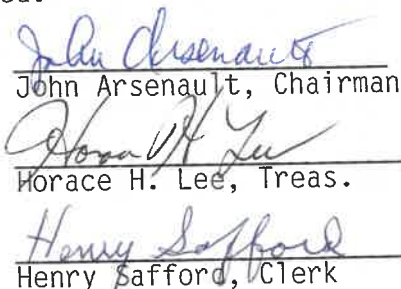 John Arsenault
John Arsenault, Chairman
Horace H Lee
Horace H. Lee, Treas.
Henry Safford
Henry Safford, Clerk